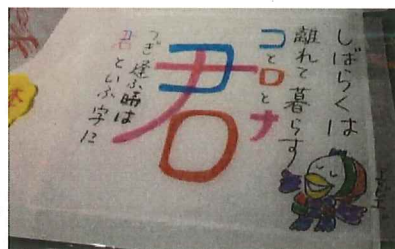 しばらくは
離れて暮らす
コとロとナ
君
つぎ逢ふ時は
君といふ字に